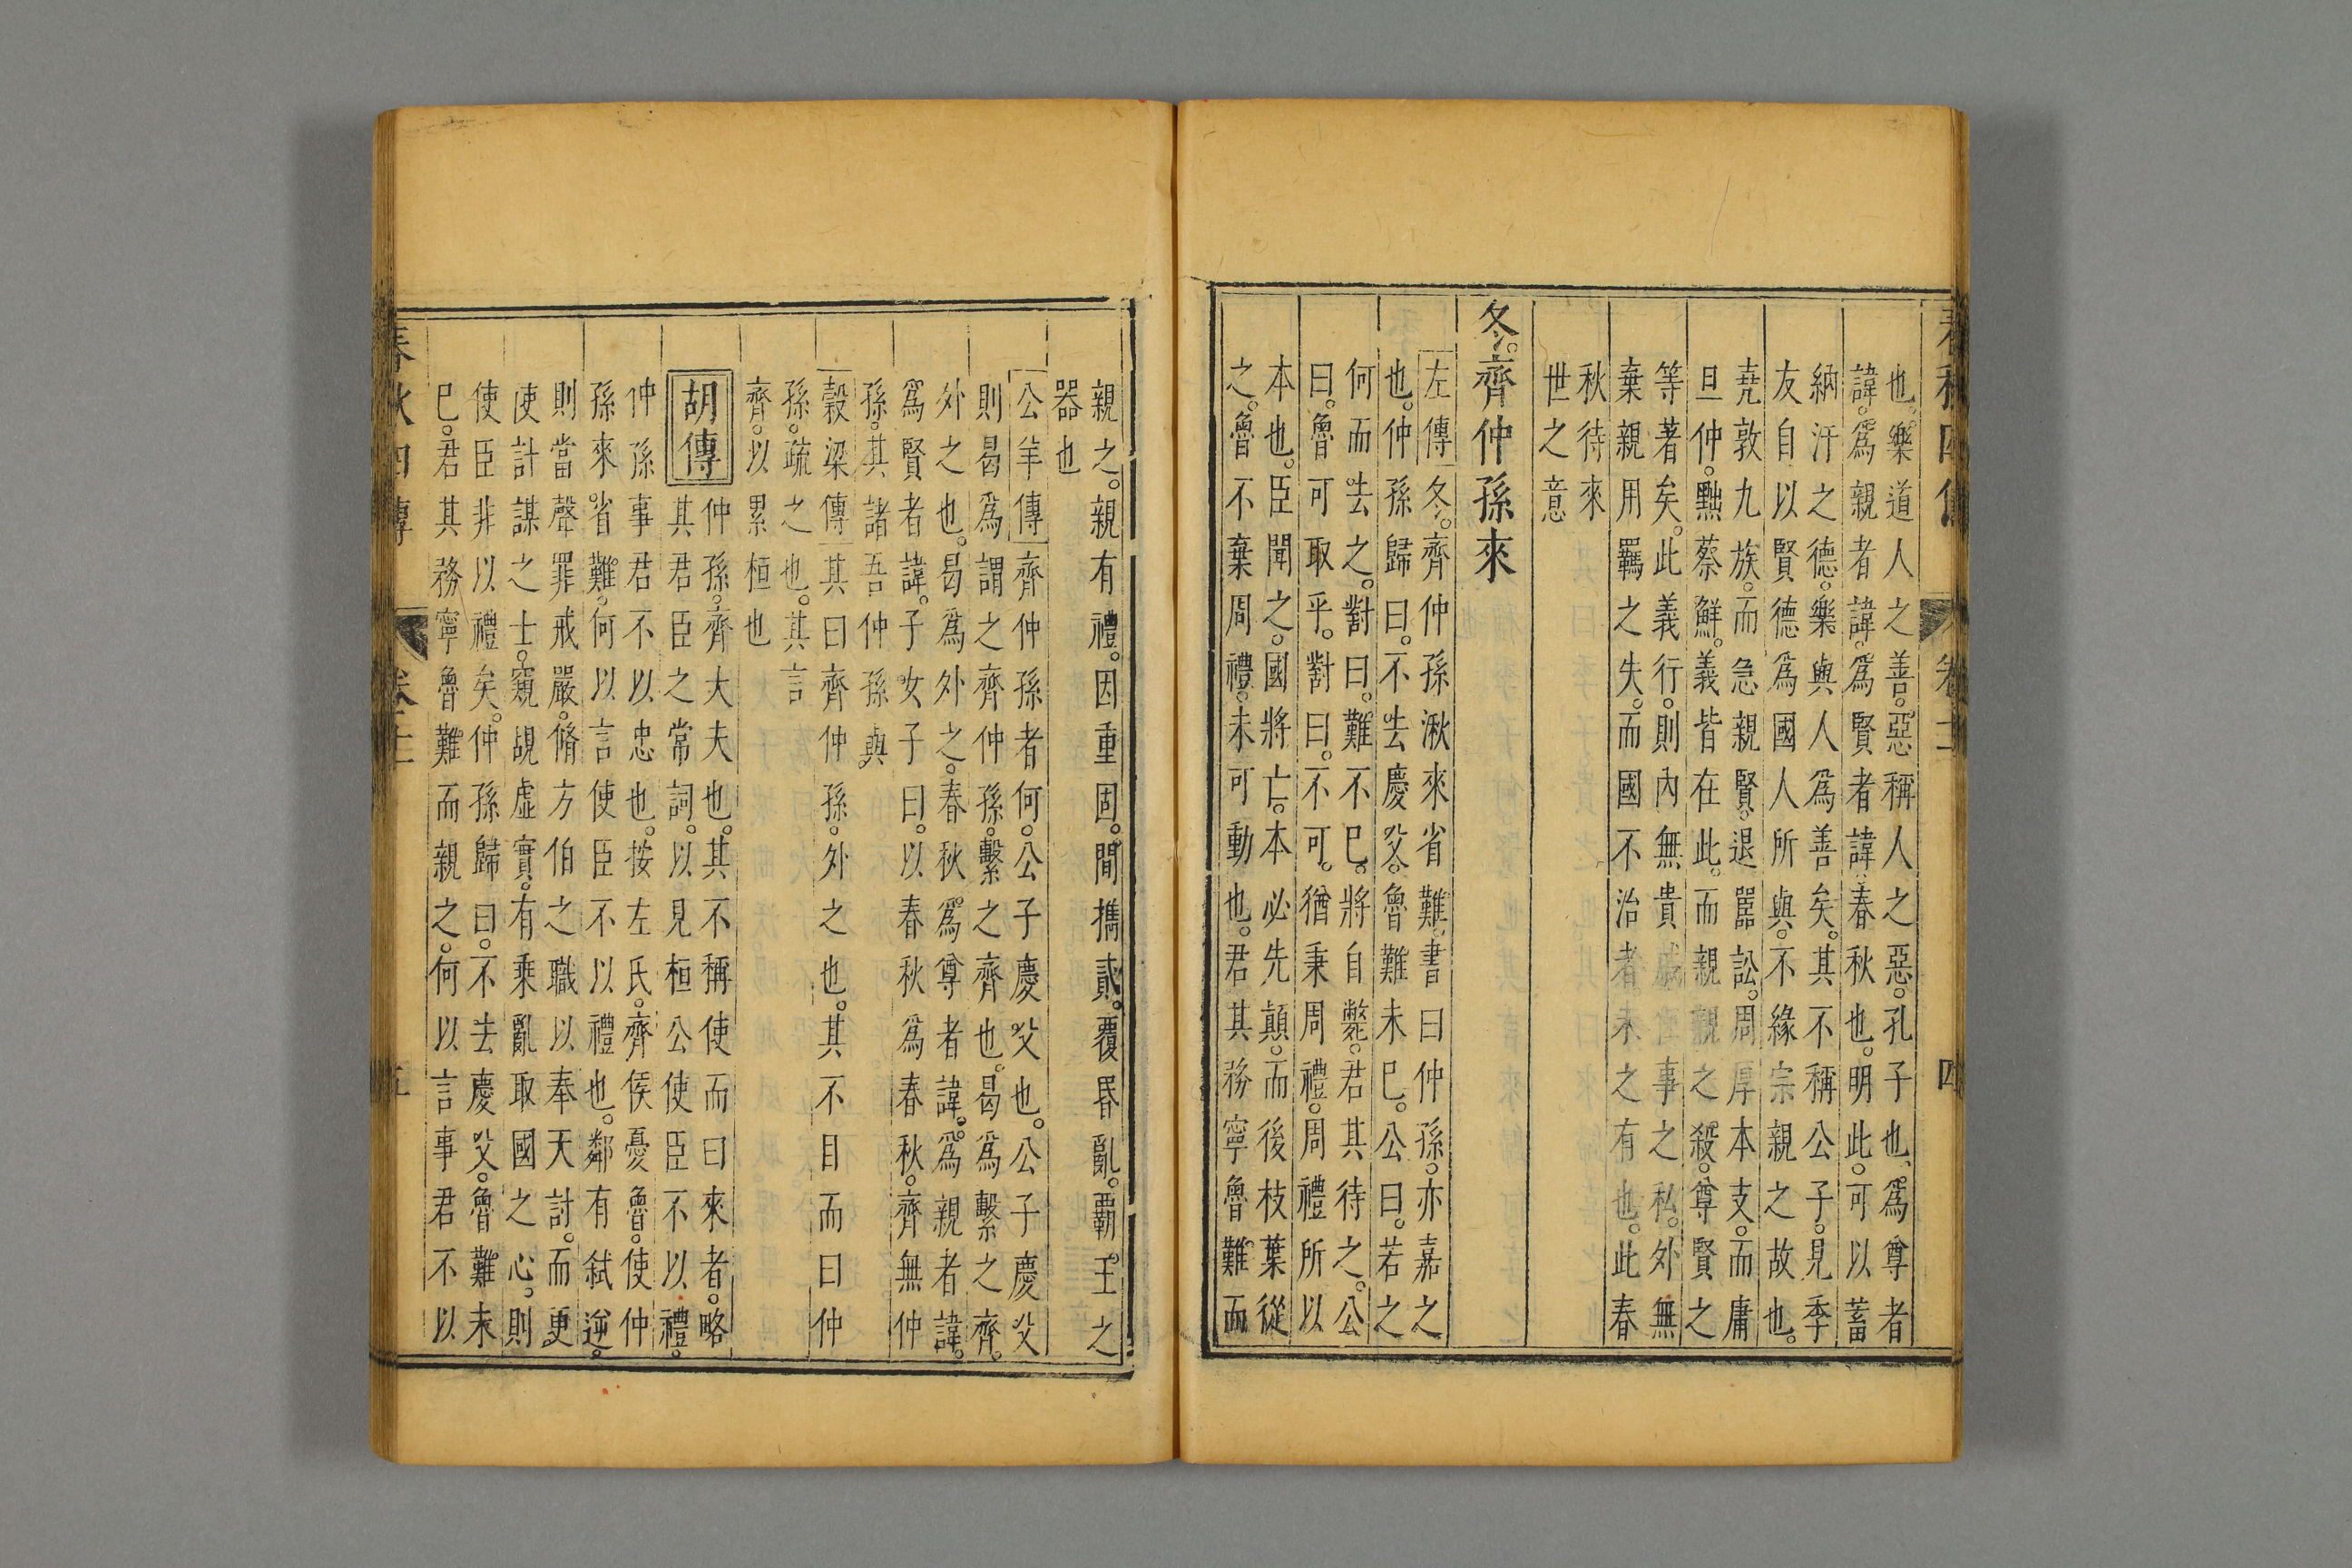 春秋四傳 卷十二 四
也。樂道人之善。惡稱人之惡。孔子也。爲尊者
諱。爲親者諱。爲賢者諱。春秋也。明此。可以蓄
納汗之德。樂與人爲善矣。其不稱公子。見季
友自以賢德爲國人所與。不緣宗親之故也。
堯敦九族。而急親賢。退嚚訟。周厚本支。而庸
旦仲。黜蔡鮮。義皆在此。而親親之殺。尊賢之
等著矣。此義行。則內無貴戚專事之私。外無
棄親用羈之失。而國不治者。未之有也。此春
秋待來
世之意
冬。齊仲孫來
左傳 冬。齊仲孫湫來省難。書曰仲孫。亦嘉之
也。仲孫歸曰。不去慶父。魯難未巳。公曰。若之
何而去之。對曰。難不巳。將自斃。君其待之。公
曰。魯可取乎。對曰。不可。猶秉周禮。周禮所以
本也。臣聞之。國將亡。本必先顛。而後枝葉從
之。魯不棄周禮。未可動也。君其務寧魯難。而
親之。親有禮。因重固。閒攜貳。覆昏亂。霸王之
器也
公羊傳 齊仲孫者何。公子慶父也。公子慶父
則曷爲謂之齊仲孫。繫之齊也。曷爲繫之齊。
外之也。曷爲外之。春秋爲尊者諱。爲親者諱。
爲賢者諱。子女子曰。以春秋爲春秋。齊無仲
孫。其諸吾仲孫與
穀梁傳 其曰齊仲孫。外之也。其不目而曰仲
孫。疏之也。其言
齊。以累桓也
胡傳 仲孫。齊大夫也。其不稱使而曰來者。略
其君臣之常詞。以見桓公使臣不以禮。
仲孫事君不以忠也。按左氏。齊侯憂魯。使仲
孫來省難。何以言使臣不以禮也。鄰有弑逆。
則當聲罪戒嚴。脩方伯之職以奉天討。而更
使計謀之士。窺覘虛實。有乘亂取國之心。則
使臣非以禮矣。仲孫歸曰。不去慶父。魯難未
巳。君其務寧魯難而親之。何以言事君不以
春秋四傳 卷十二 五